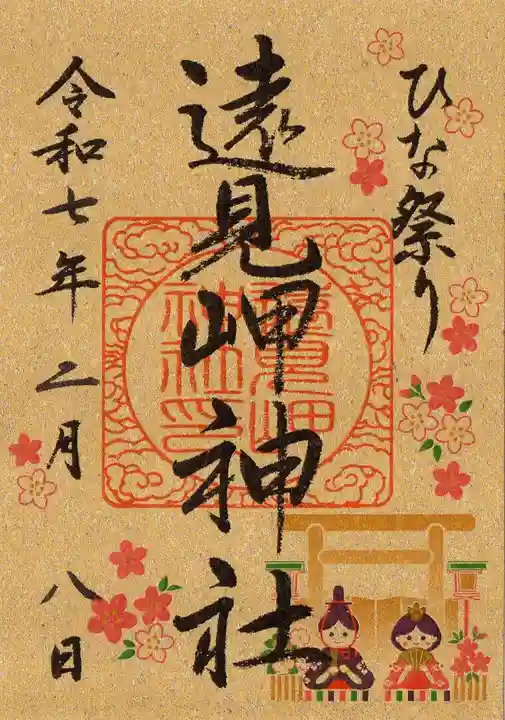 ひな祭り
遠見岬神社
遠見岬
神社印
令和七年 二月 八日